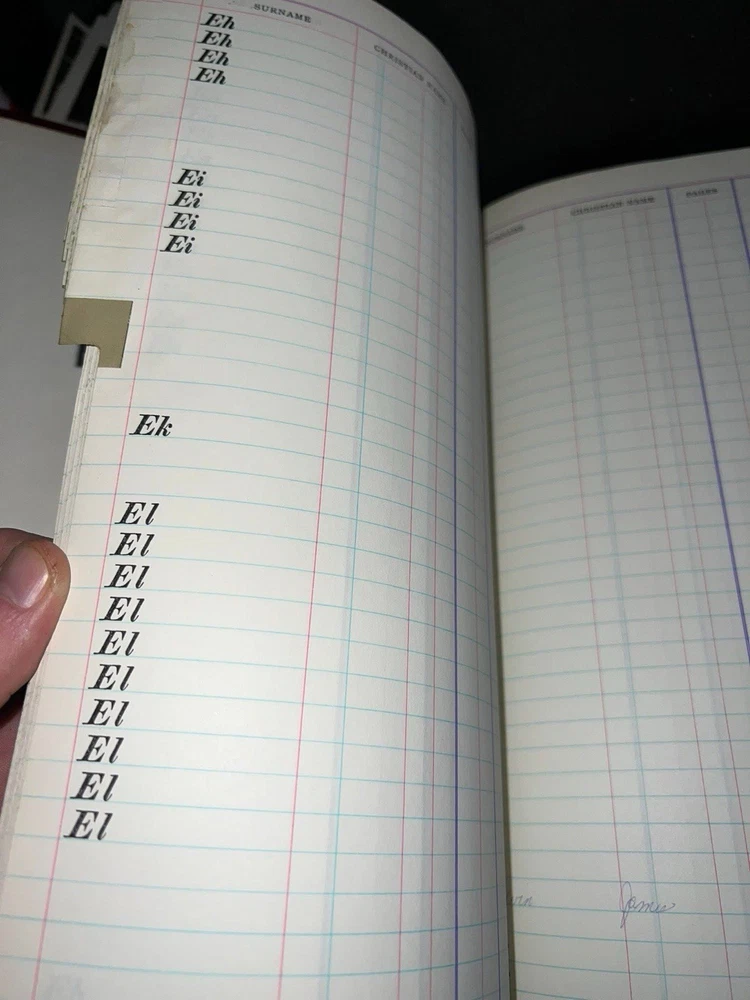 SURNAME
CHRISTIAN NAME
Eh
Eh
Eh
Eh
Ei
Ei
Ei
Ei
Ek
El
El
El
El
El
El
El
El
El
El
CHRISTIAN NAME
James